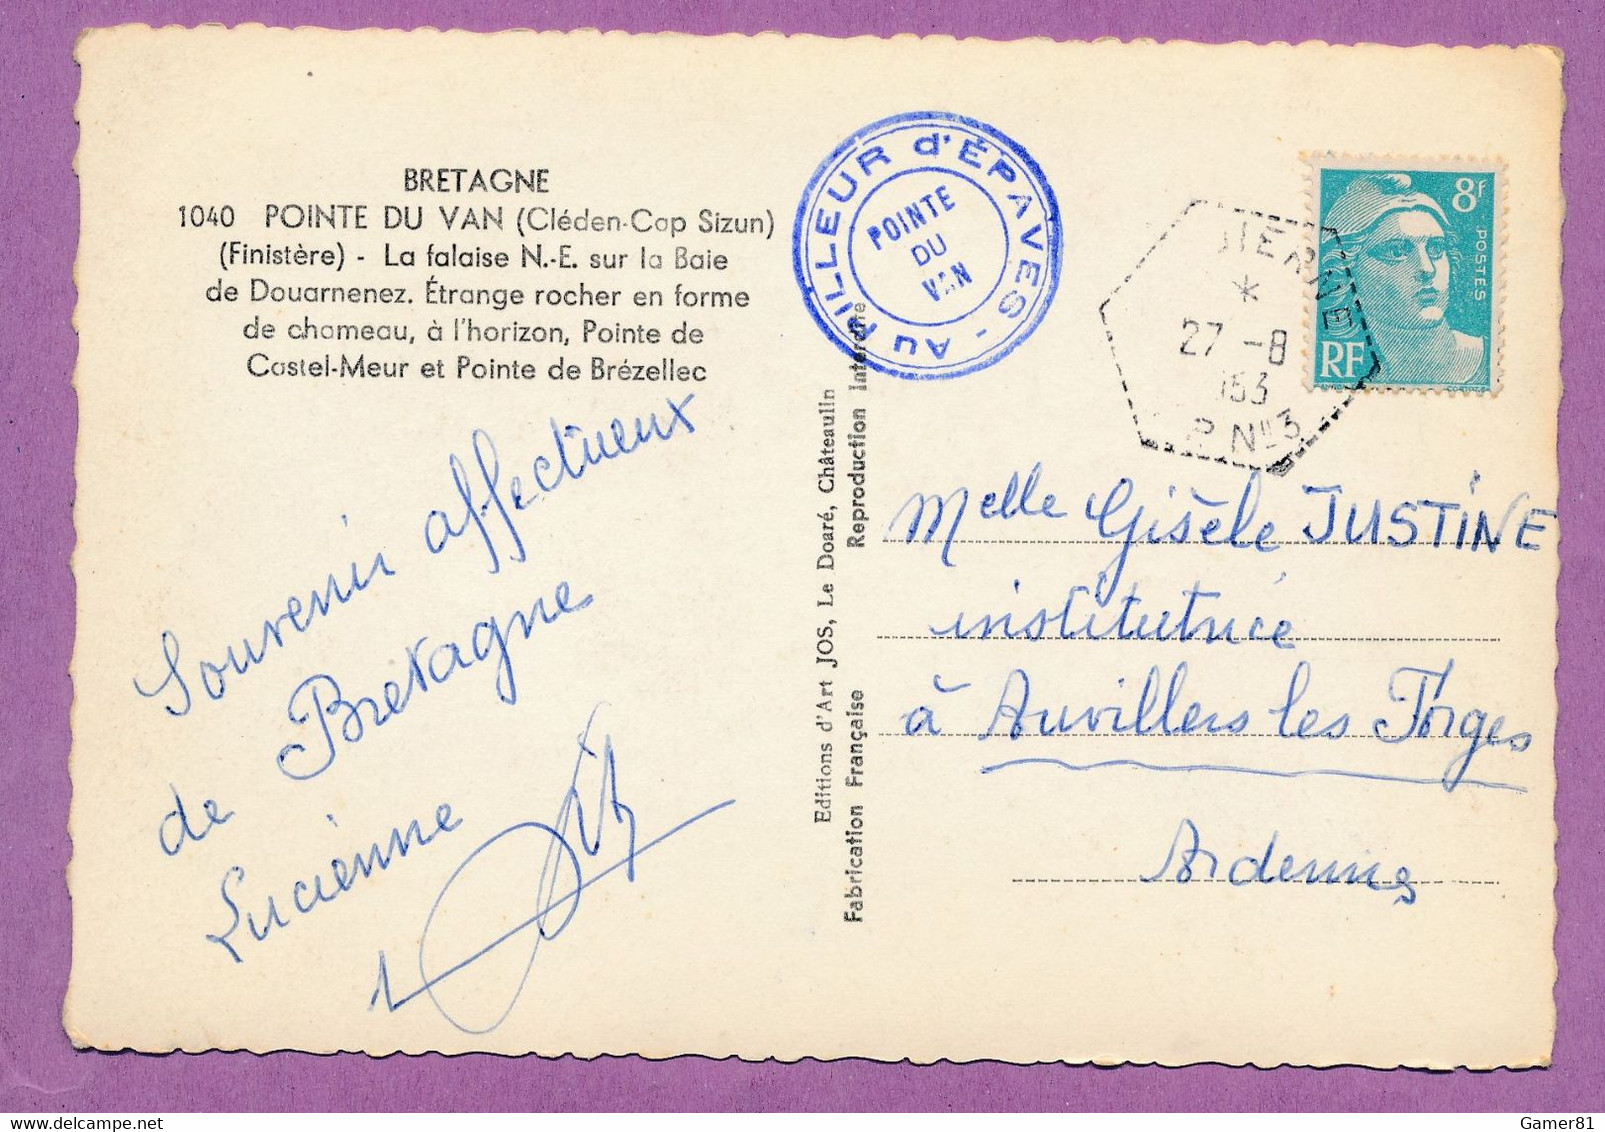 BRETAGNE
1040 POINTE DU VAN (Cléden-Cap Sizun)
(Finistère) - La falaise N.-E. sur la Baie
de Douarnenez. Étrange rocher en forme
de chameau, à l'horizon, Pointe de
Castel-Meur et Pointe de Brézellec
Souvenir affectueux
de Bretagne
Lucienne
Editions d'Art JOS, Le Doaré, Châteaulin
Fabrication Française Reproduction Interdite
AU PILLEUR d'ÉPAVES -
POINTE
DU
VAN
IERNE
*
27 -8
53
P. N° 3
8f
POSTES
RF
Melle Gisèle JUSTINE
institutrice
à Auvillers les Forges
Ardennes
Gamer81